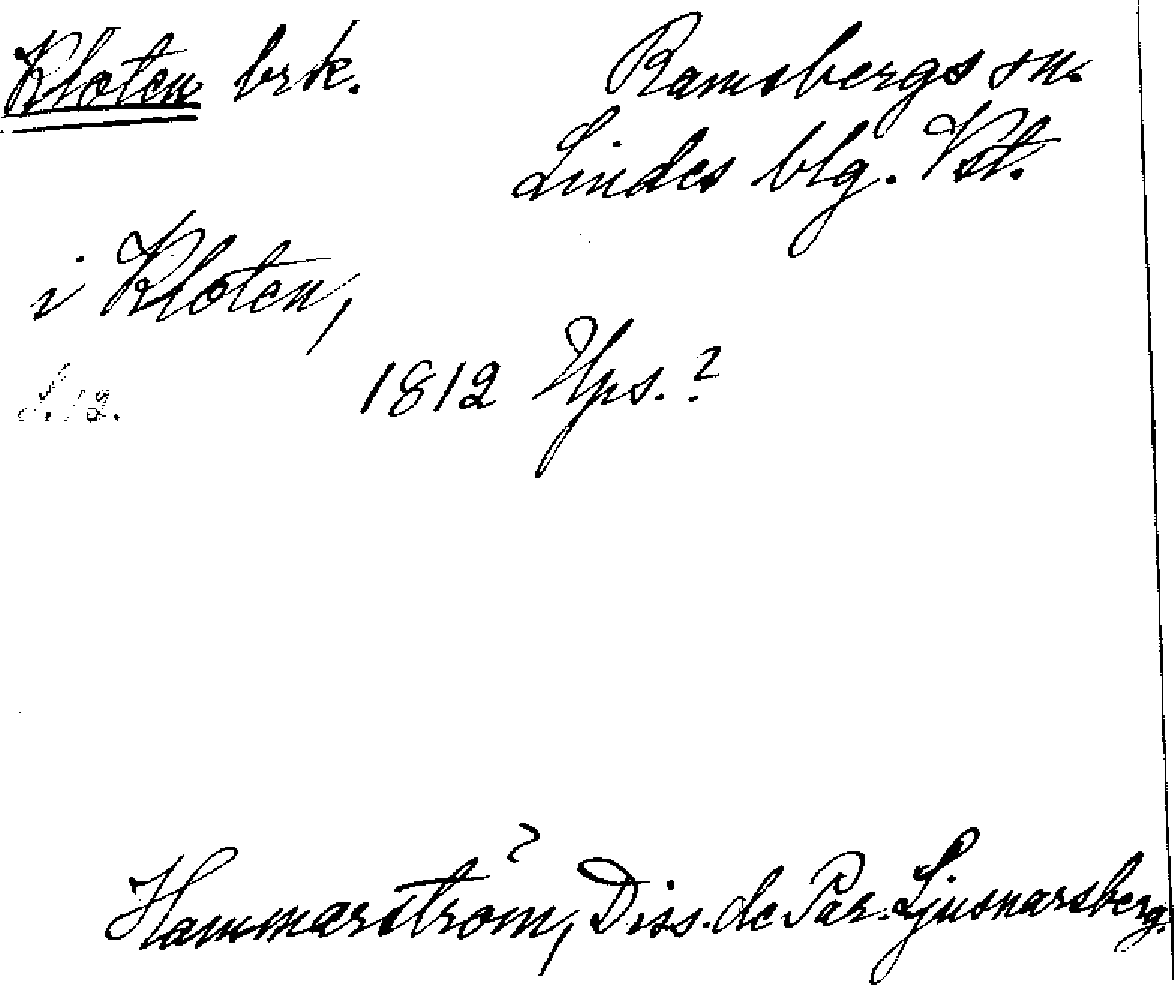 Kloten brk. Ramsbergs sn.
Lindes blg. Vst.
i Kloten,
s. 12. 1812 Ups.?
?
Hammarström, Diss. de Par. Ljusnarsberg.